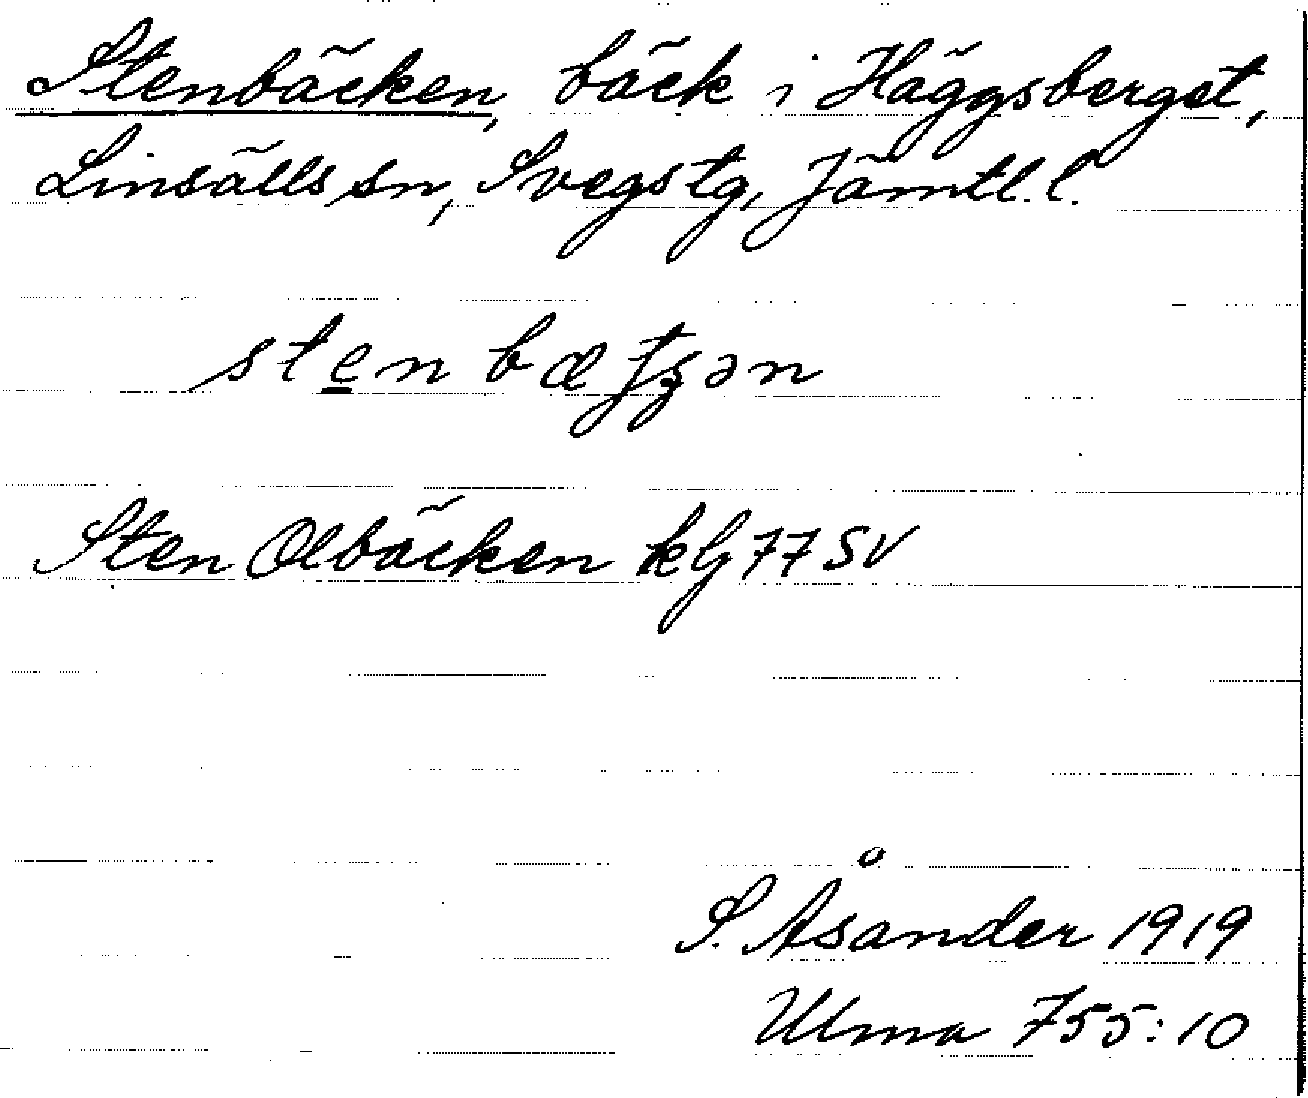 Stenbäcken, bäck i Häggsberget,
Linsälls sn, Svegs tg, Jämtl. l.
Sten Olbäcken kbl 77 SV
S. Åsander 1919
Ulma 755:10